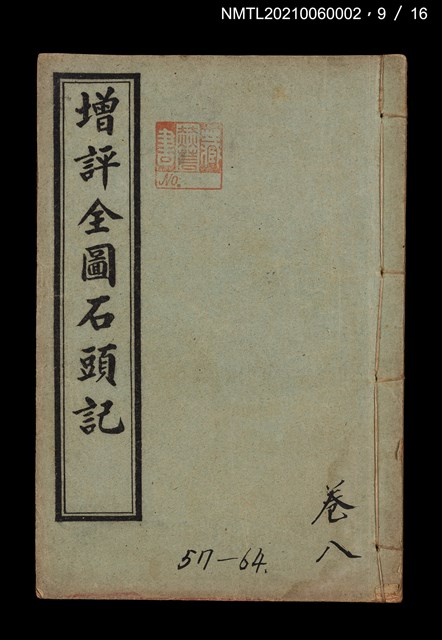 NMTL20210060002，9 / 16
增評全圖石頭記
藏
書
No.
卷八
57-64.